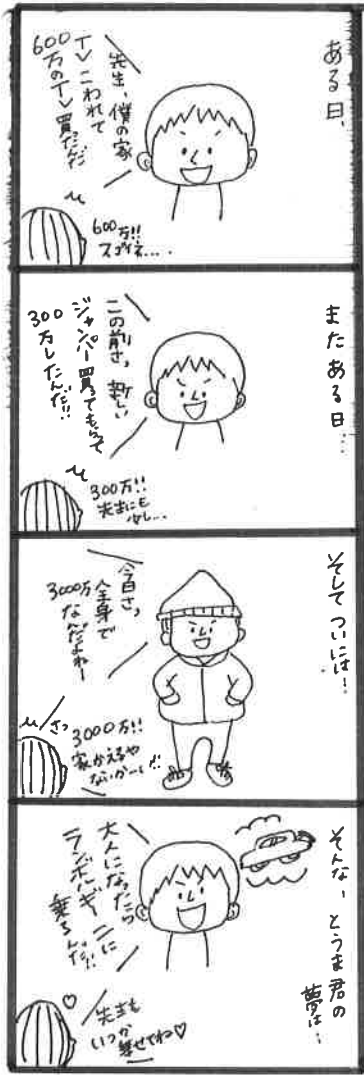 ある日、
先生、僕の家
TVこわれて
600万のTV買ったんだ
600万!!
スゴイネ....
またある日...
この前さ、新しい
ジャンパー買ってもらって
300万したんだ!!
300万!!
先生にも
少し...
そしてついには!
今日さ、
全身で
3000万なんだよねー
さっ
3000万!!
家かえるや
ないかーい!!
そんな、とうま君の
夢は...
大人になったら
ランボルギーニに
乗るんだ!!
先生も
いつか
乗せてね♡